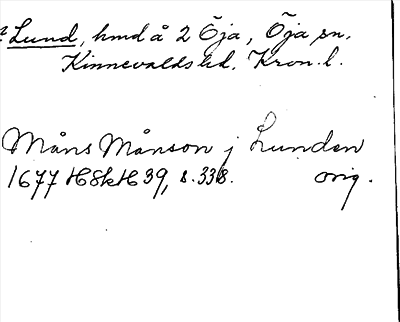 Lund, hmd å 2 Öja, Öja sn.
Kinnevalds hd. Kron. l.
Måns Månson j Lunden
1677 HSkH 39, s. 338. orig.